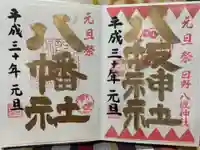 元旦祭
八幡社
平成三十年 元旦
元旦祭 日野八坂神社
八坂神社
平成三十年 元旦